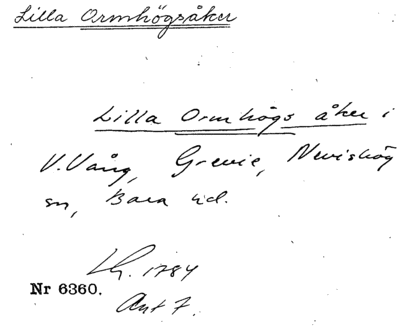 Lilla Ormhögsåker
Lilla Ormhögs åker i
V. Vång, Grevie, Nevishög
sn, Bara hd.
Lh. 1784
Nr 6360.
Ant 7.